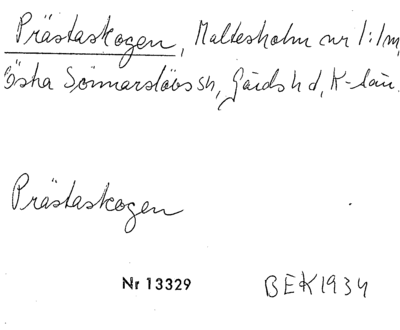 Prästaskogen, Maltesholm nr 1:1m,
Östra Sönnarslövs sn, Gärds hd, K-län.
Prästaskogen
Nr 13329
BEK 1934